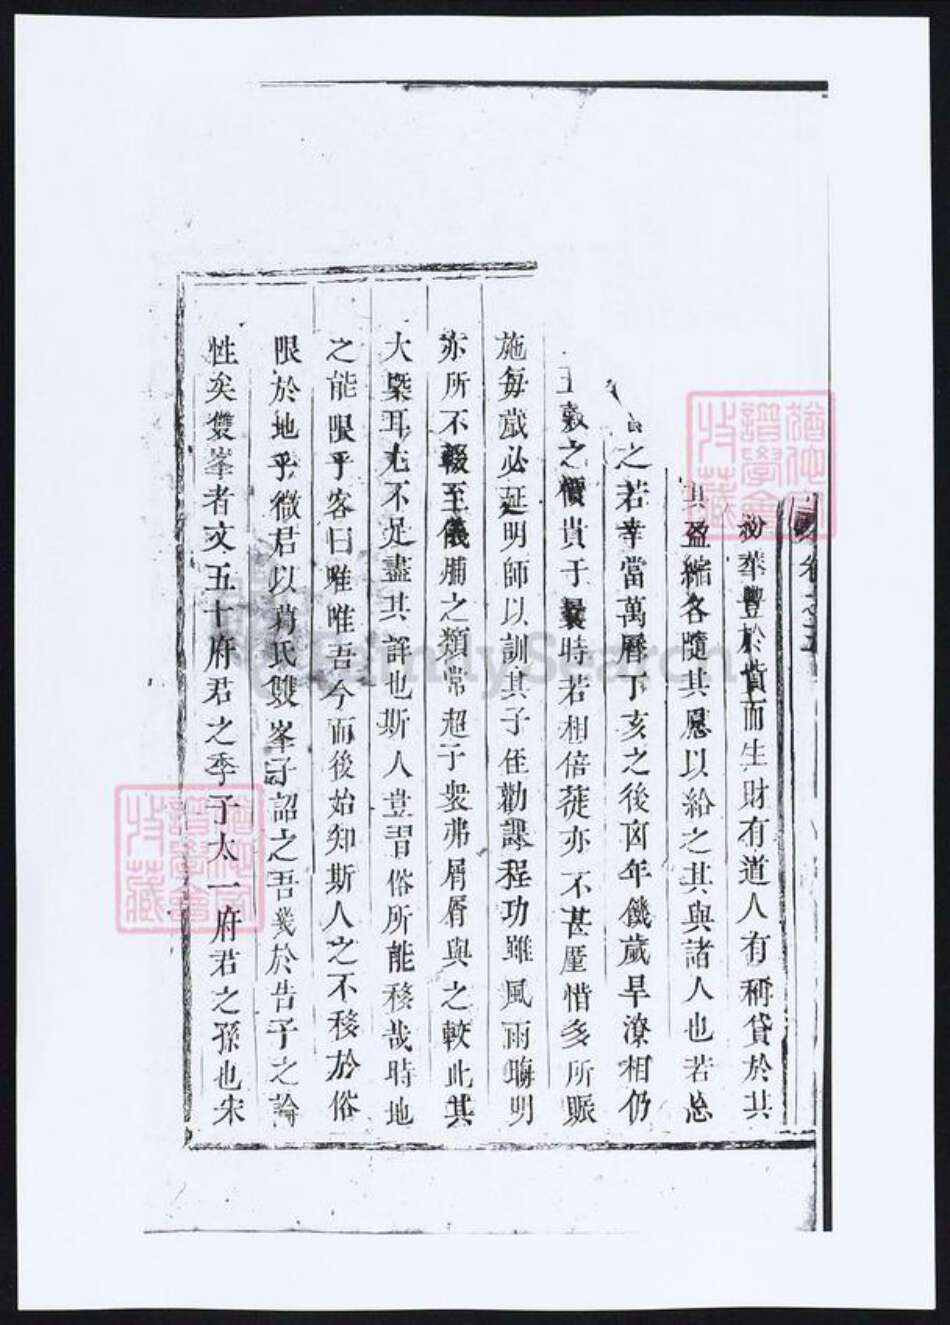 紛華豐於積而生財有道人有稱貸於其
其盈縮各隨其愿以給之其與諸人也若忩
之若幸當萬曆丁亥之後凶年饑歲旱潦相仍
五穀之價貴于曩時若相倍蓰亦不甚慳惜多所賑
施每歲必延明師以訓其子侄勸課程功雖風雨晦明
亦所不輟至儀脯之類常超于眾弗屑屑與之較此其
大槩耳尤不足盡其詳也斯人豈習俗所能移哉時地
之能限乎客曰唯唯吾今而後始知斯人之不移於俗
限於地乎徵君以葛氏雙峯子詔之吾幾於告子之論
性矣雙峯者文五十府君之季子太一府君之孫也宋
猶他家譜學會收藏
猶他家譜學會收藏
FamilySearch